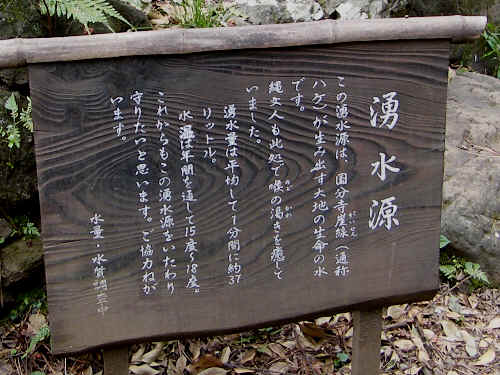 湧水源
この湧水源は、国分寺崖線(通称
ハケ)が生み出す大地の生命の水
です。
縄文人も此処で喉の渇きを癒して
いました。
湧水量は平均して1分間に約37
リットル。
水温は年間を通して15度〜18度。
これからもこの湧水源をいたわり
守りたいと思います。ご協力ねが
います。
水量・水質調査中